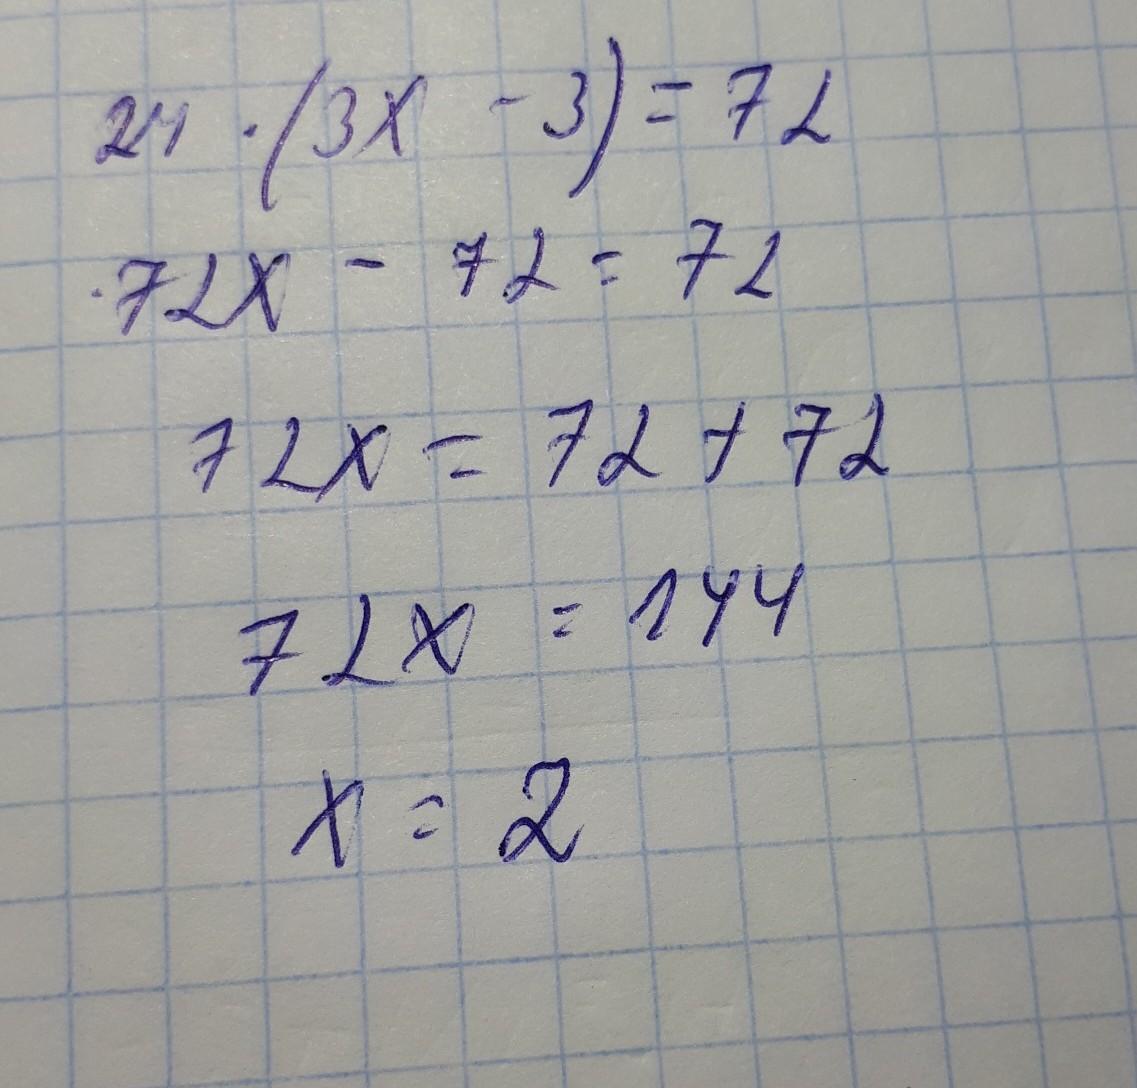 24 · (3x - 3) = 72
72x - 72 = 72
72x = 72 + 72
72x = 144
x = 2